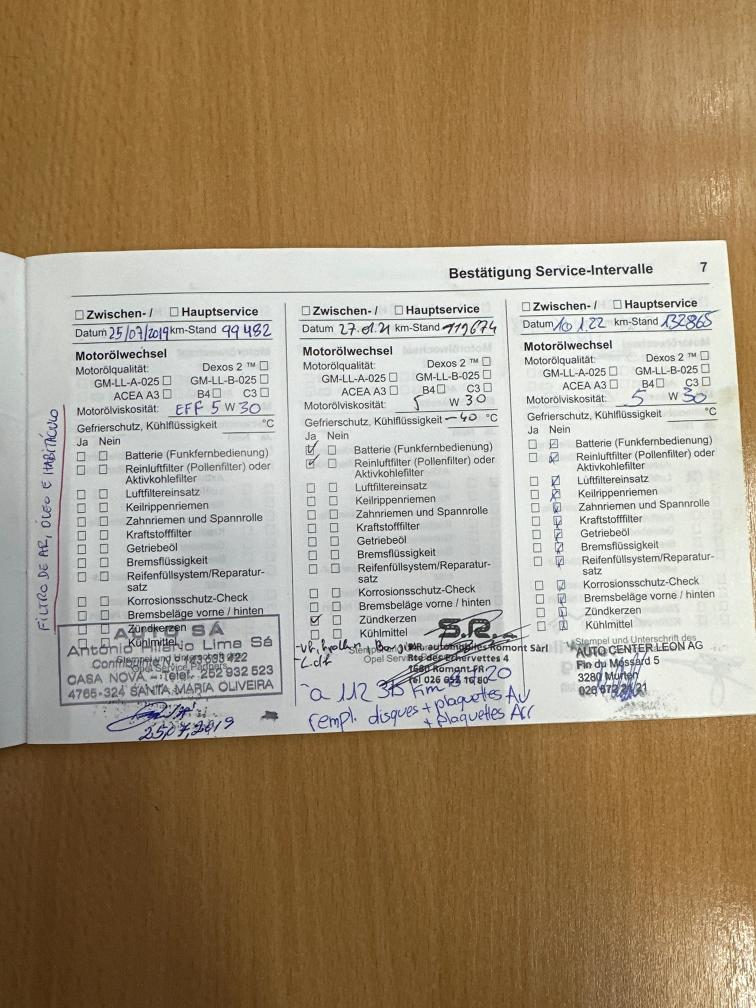 Bestätigung Service-Intervalle 7
Zwischen- / Hauptservice
Datum 25/07/2019 km-Stand 99 482
Motorölwechsel
Motorölqualität: Dexos 2 ™
GM-LL-A-025 GM-LL-B-025
ACEA A3 B4 C3
Motorölviskosität: EFF 5 W 30
Gefrierschutz, Kühlflüssigkeit °C
Ja Nein
Batterie (Funkfernbedienung)
Reinluftfilter (Pollenfilter) oder
Aktivkohlefilter
Luftfiltereinsatz
Keilrippenriemen
Zahnriemen und Spannrolle
Kraftstofffilter
Getriebeöl
Bremsflüssigkeit
Reifenfüllsystem/Reparatur-
satz
Korrosionsschutz-Check
Bremsbeläge vorne / hinten
Zündkerzen
Kühlmittel
FILTRO DE AR, ÓLEO E HABITÁCULO
AUTO SÁ
António Hilário Lima Sá
CASA NOVA - Telef. 252 932 523
4765-324 SANTA MARIA OLIVEIRA
25,07,2019
Zwischen- / Hauptservice
Datum 27.01.21 km-Stand 119674
Motorölwechsel
Motorölqualität: Dexos 2 ™
GM-LL-A-025 GM-LL-B-025
ACEA A3 B4 C3
Motorölviskosität: 5 W 30
Gefrierschutz, Kühlflüssigkeit -40 °C
Ja Nein
Batterie (Funkfernbedienung)
Reinluftfilter (Pollenfilter) oder
Aktivkohlefilter
Luftfiltereinsatz
Keilrippenriemen
Zahnriemen und Spannrolle
Kraftstofffilter
Getriebeöl
Bremsflüssigkeit
Reifenfüllsystem/Reparatur-
satz
Korrosionsschutz-Check
Bremsbeläge vorne / hinten
Zündkerzen
Kühlmittel
S.R.
automobiles Romont Sàrl
Rte des Echervettes 4
1680 Romont FR
Tél 026
à 112 315 km
rempl. disques + plaquettes AV
+ plaquettes Arr
Zwischen- / Hauptservice
Datum 10.1.22 km-Stand 132865
Motorölwechsel
Motorölqualität: Dexos 2 ™
GM-LL-A-025 GM-LL-B-025
ACEA A3 B4 C3
Motorölviskosität: 5 W 30
Gefrierschutz, Kühlflüssigkeit °C
Ja Nein
Batterie (Funkfernbedienung)
Reinluftfilter (Pollenfilter) oder
Aktivkohlefilter
Luftfiltereinsatz
Keilrippenriemen
Zahnriemen und Spannrolle
Kraftstofffilter
Getriebeöl
Bremsflüssigkeit
Reifenfüllsystem/Reparatur-
satz
Korrosionsschutz-Check
Bremsbeläge vorne / hinten
Zündkerzen
Kühlmittel
Stempel und Unterschrift des
AUTO CENTER LEON AG
Fin du Mossard 5
3280 Murten
026 672 21 21